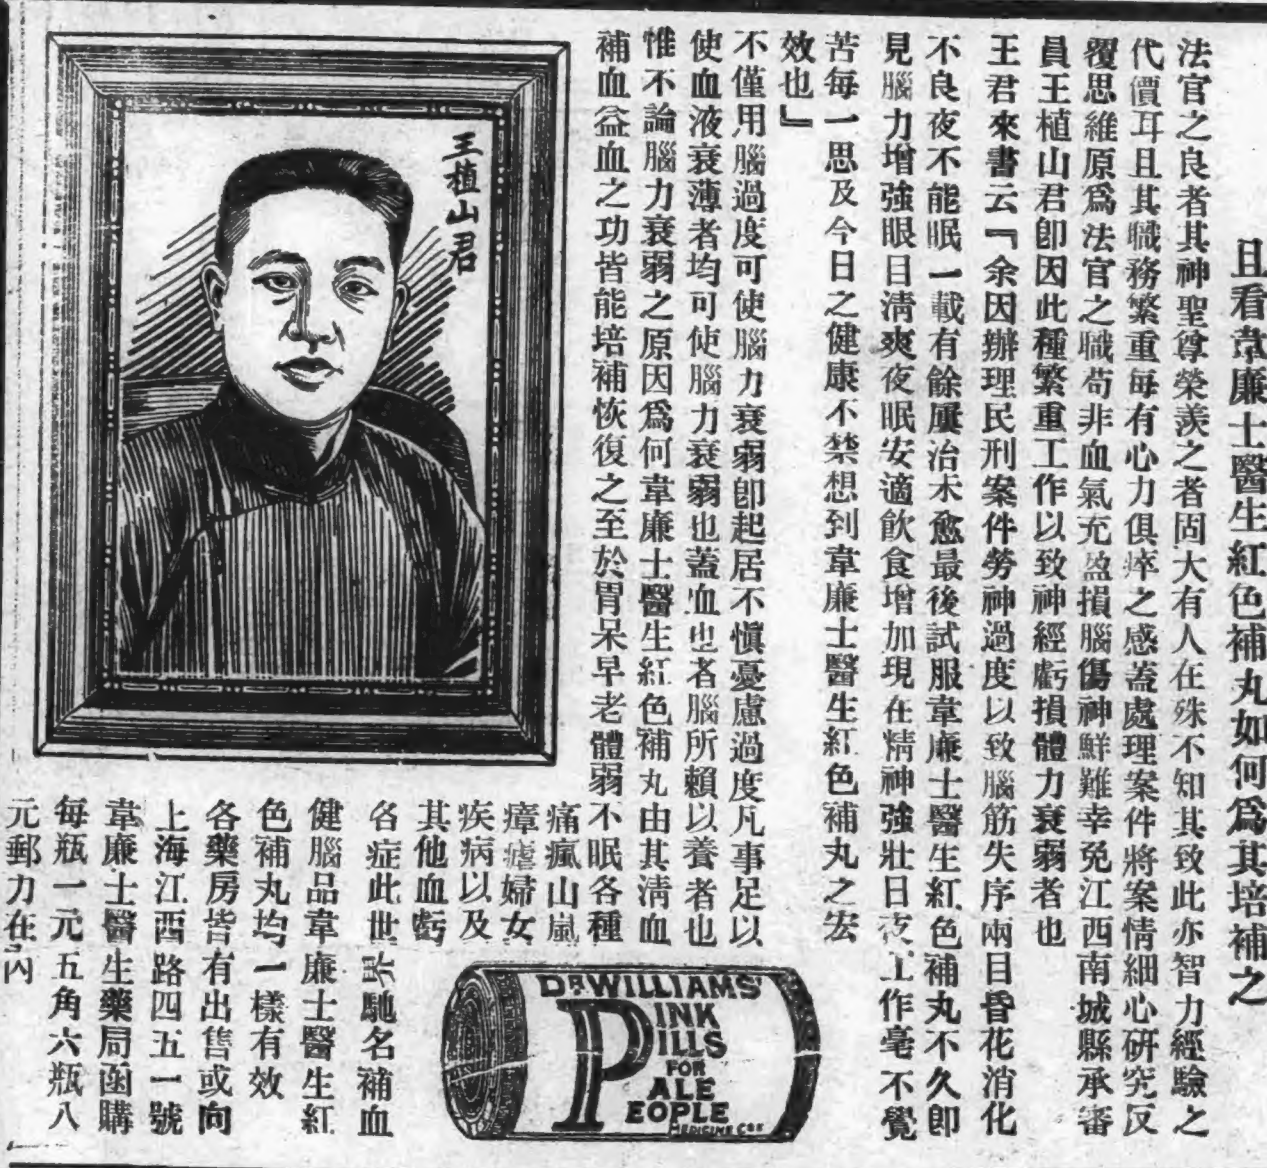 且看韋廉士醫生紅色補丸如何爲其培補之
法官之良者其神聖尊榮羨之者固大有人在殊不知其致此亦智力經驗之
代價耳且其職務繁重每有心力俱瘁之感蓋處理案件將案情細心研究反
覆思維原爲法官之職苟非血氣充盈損腦傷神鮮難幸免江西南城縣承審
員王植山君卽因此種繁重工作以致神經虧損體力衰弱者也
王君來書云『余因辦理民刑案件勞神過度以致腦筋失序兩目昏花消化
不良夜不能眠一載有餘屢治未愈最後試服韋廉士醫生紅色補丸不久卽
見腦力增強眼目淸爽夜眠安適飲食增加現在精神強壯日夜工作毫不覺
苦每一思及今日之健康不禁想到韋廉士醫生紅色補丸之宏
效也』
不僅用腦過度可使腦力衰弱卽起居不愼憂慮過度凡事足以
使血液衰薄者均可使腦力衰弱也蓋血也者腦所賴以養者也
惟不論腦力衰弱之原因爲何韋廉士醫生紅色補丸由其淸血
補血益血之功皆能培補恢復之至於胃呆早老體弱不眠各種
痛瘋山嵐
瘴瘧婦女
疾病以及
其他血虧
各症此世界馳名補血
健腦品韋廉士醫生紅
色補丸均一樣有效
各藥房皆有出售或向
上海江西路四五一號
韋廉士醫生藥局函購
每瓶一元五角六瓶八
元郵力在內
王植山君
DR WILLIAMS'
PINK
PILLS
FOR
PALE
PEOPLE
MEDICINE CO